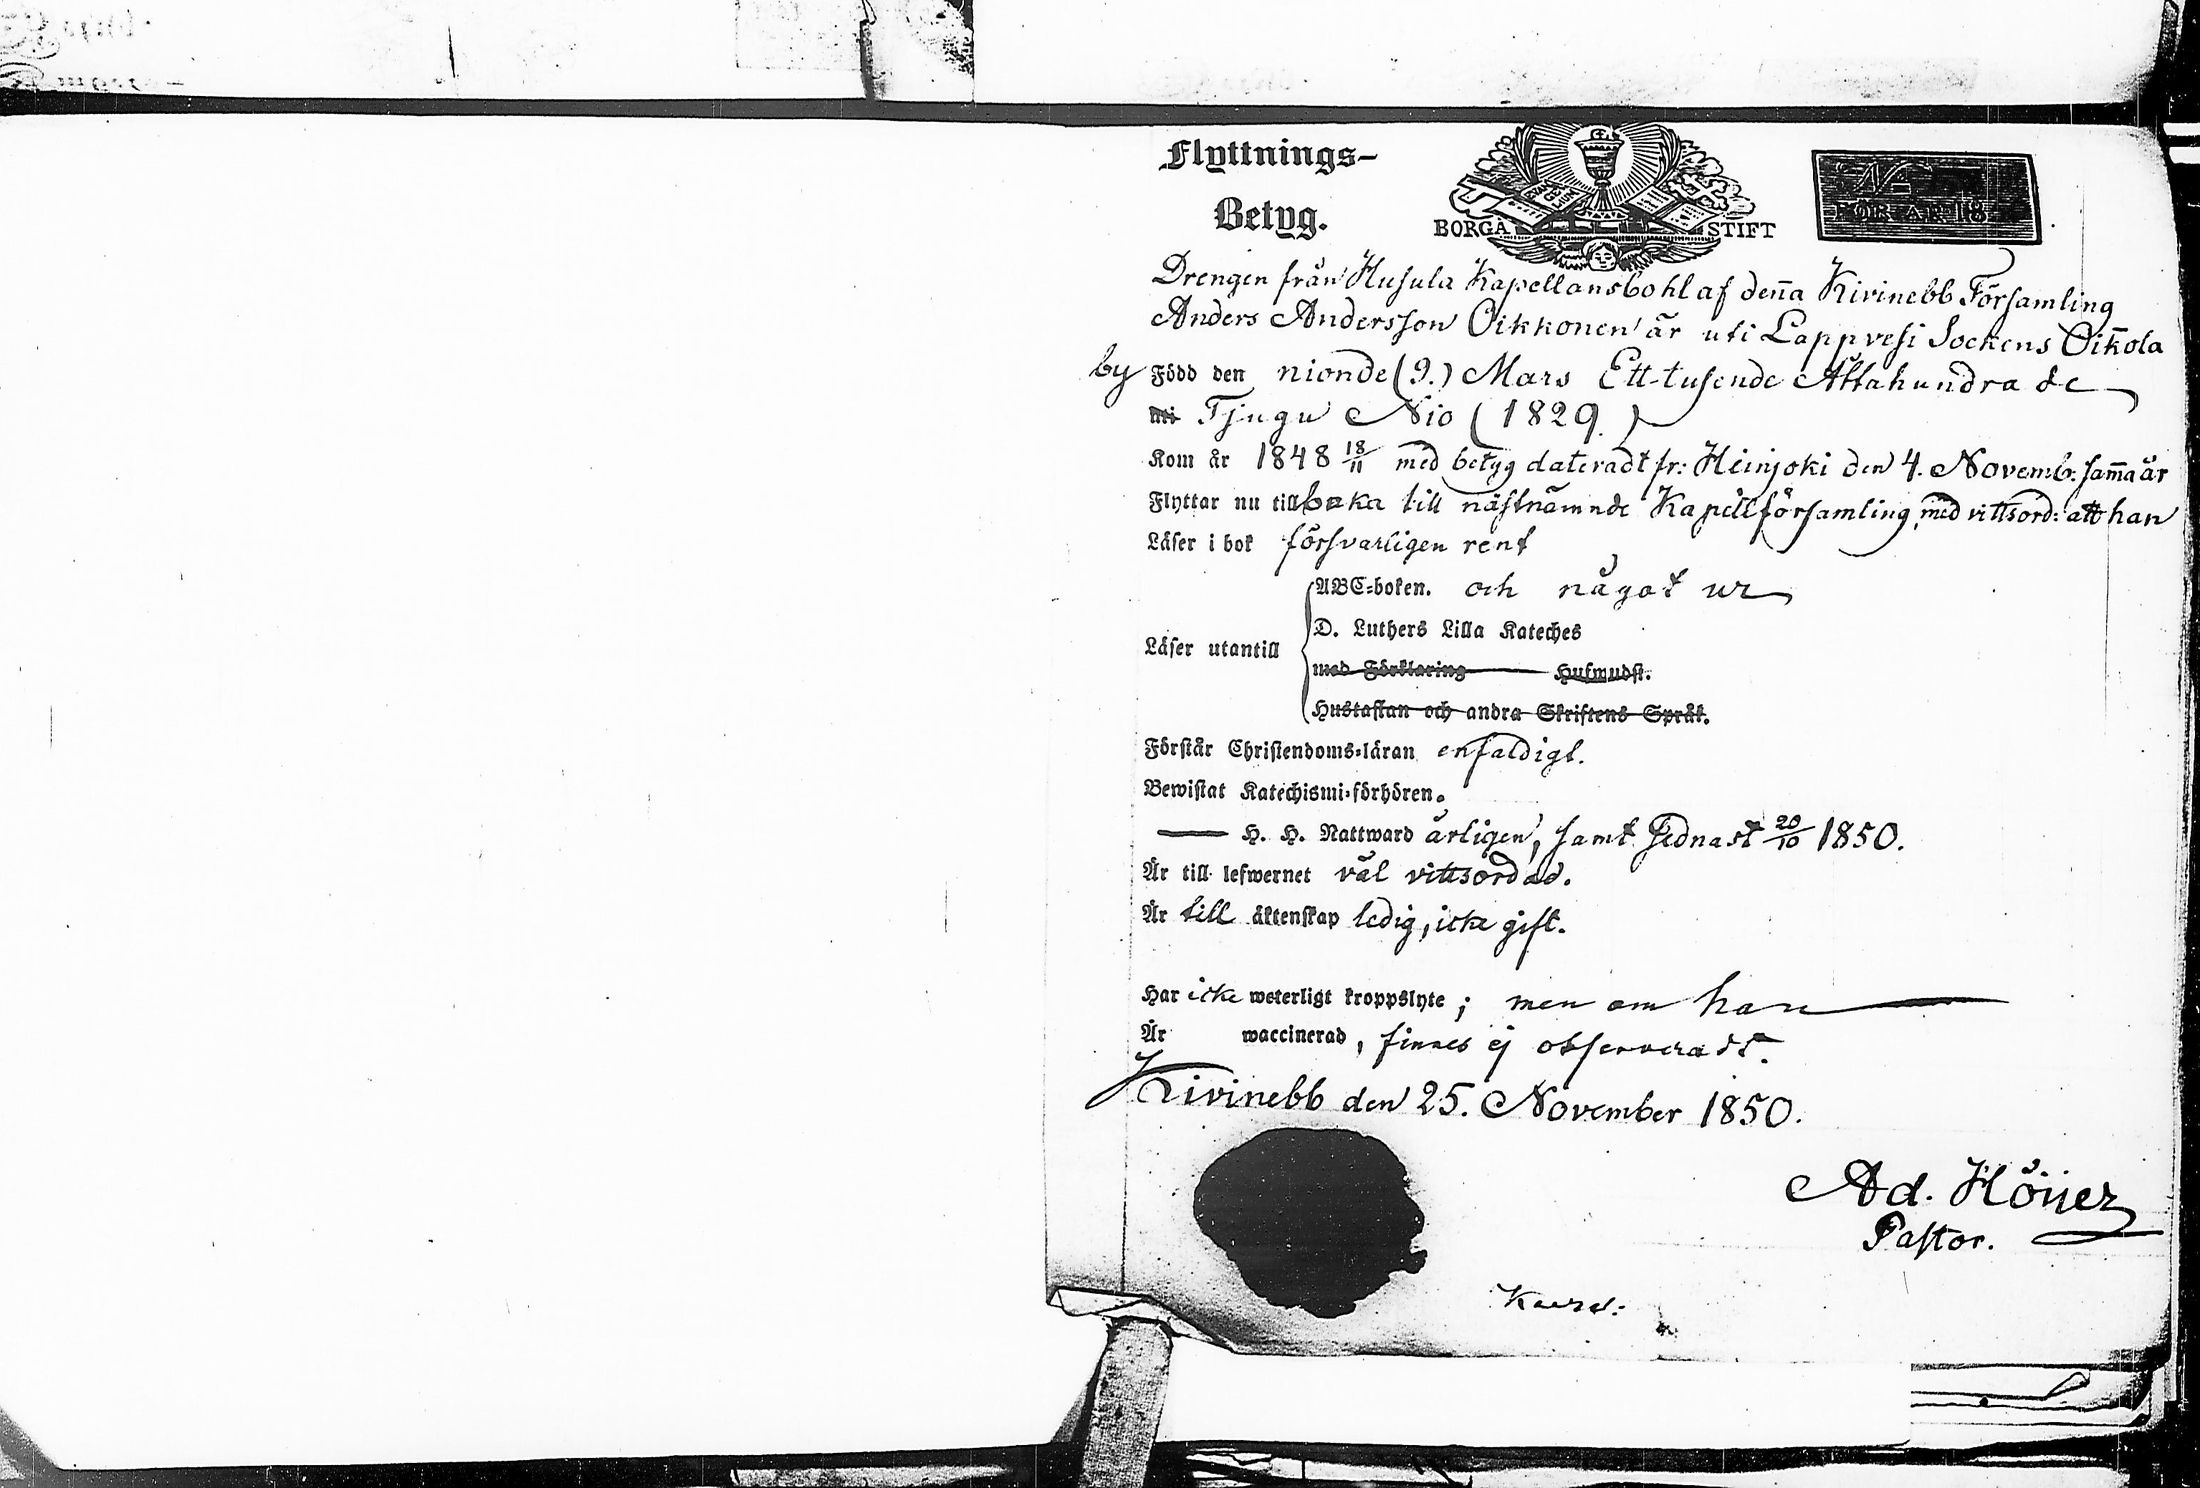 Flyttnings-
Betyg.
BORGÅ STIFT
FÖR ÅR 18
Drengen från Husula Kapellansbohl af dena Kivinebb Församling
Anders Andersson Oikkonen är uti Lappvesi Sockens Oikola
by Född den nionde (9.) Mars Ett-tusende Åttahundra de
Tjugu Nio (1829.)
Kom år 1848 18/11 med betyg dateradt fr: Heinjoki den 4. Novemb: sama år
Flyttar nu tillbaka till nästnämnde Kapellförsamling, med vittsord: att han
Läser i bok försvarligen rent
ABC-boken. och något ur
D. Luthers Lilla Kateches
Läser utantill
med Förklaring Hufwudst.
Hustaflan och andra Skriftens Språk.
Förstår Christendoms-läran enfaldigt.
Bewistat Katechismi-förhören.
— H. H. Nattward årligen, samt sednast 20/10 1850.
Är till lefwernet väl vittsordad.
Är till äktenskap ledig, icke gift.
Har icke weterligt kroppslyte; men om han
Är waccinerad, finnes ej observeradt.
Kivinebb den 25. November 1850.
Ad. Höijer
Pastor.